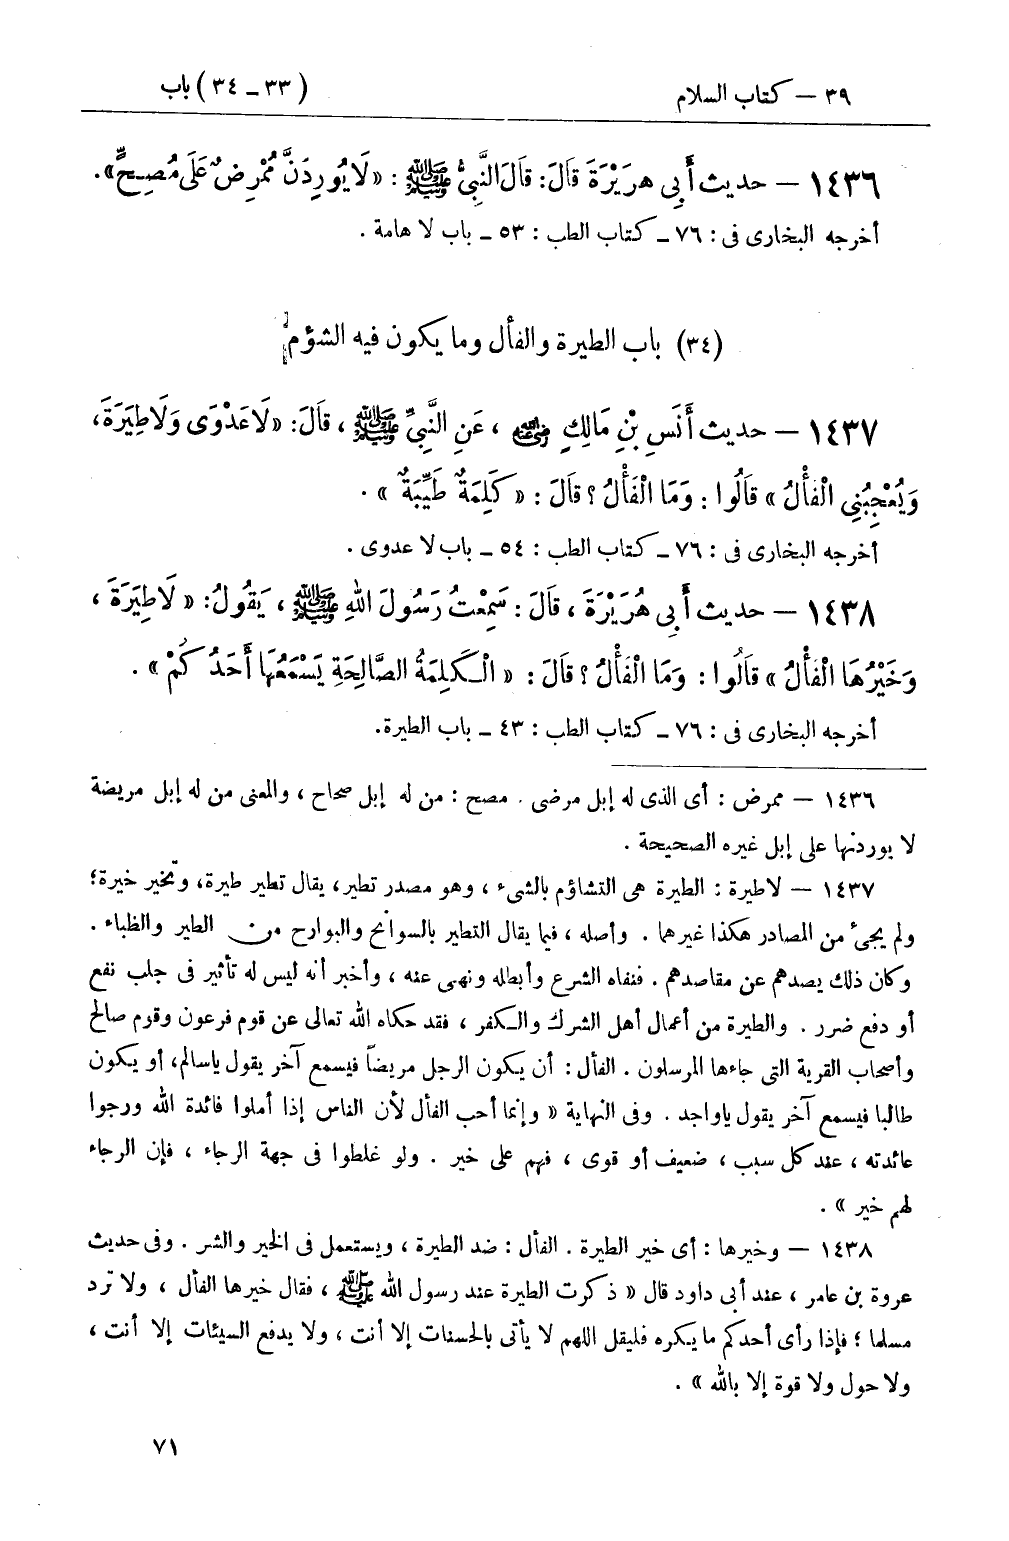 ٣٩ – كتاب السلام (٣٣ ــ ٣٤) باب
١٤٣٦ – حديث أَبِي هرَيْرَةَ قَالَ: قَالَ النَّبِيُّ ﷺ : « لَا يُورِدَنَّ مُمْرِضٌ عَلَى مُصِحٍّ » .
أخرجه البخارى فى : ٧٦ ــ كتاب الطب : ٥٣ ــ باب لا هامة .
(٣٤) باب الطيرة والفأل وما يكون فيه الشؤم
١٤٣٧ – حديث أَنَسِ بْنِ مَالِكٍ رضي الله عنه ، عَنِ النَّبِيِّ ﷺ ، قَالَ: « لَا عَدْوَى وَلَا طِيَرَةَ ،
وَيُعْجِبُنِي الْفَأْلُ » قَالُوا : وَمَا الْفَأْلُ ؟ قَالَ : « كَلِمَةٌ طَيِّبَةٌ » .
أخرجه البخارى فى : ٧٦ ــ كتاب الطب : ٥٤ ــ باب لا عدوى .
١٤٣٨ – حديث أَبِي هُرَيْرَةَ ، قَالَ : سَمِعْتُ رَسُولَ اللهِ ﷺ ، يَقُولُ: « لَا طِيَرَةَ ،
وَخَيْرُهَا الْفَأْلُ » قَالُوا : وَمَا الْفَأْلُ ؟ قَالَ : « الْكَلِمَةُ الصَّالِحَةِ يَسْمَعُهَا أَحَدُكُمْ » .
أخرجه البخارى فى : ٧٦ ــ كتاب الطب : ٤٣ ــ باب الطيرة.
١٤٣٦ – ممرض : أى الذى له إبل مرضى . مصح : من له إبل صحاح ، والمعنى من له إبل مريضة
لا يوردنها على إبل غيره الصحيحة .
١٤٣٧ – لاطيرة : الطيرة هى التشاؤم بالشىء ، وهو مصدر تطير، يقال تطير طيرة، وتخير خيرة؛
ولم يجئ من المصادر هكذا غيرهما . وأصله ، فيما يقال التطير بالسوانح والبوارح من الطير والظباء .
وكان ذلك يصدهم عن مقاصدهم . فنفاه الشرع وأبطله ونهى عنه ، وأخبر أنه ليس له تأثير فى جلب نفع
أو دفع ضرر . والطيرة من أعمال أهل الشرك والكفر ، فقد حكاه الله تعالى عن قوم فرعون وقوم صالح
وأصحاب القرية التى جاءها المرسلون . الفأل : أن يكون الرجل مريضاً فيسمع آخر يقول ياسالم، أو يكون
طالبا فيسمع آخر يقول ياواجد . وفى النهاية « وإنما أحب الفأل لأن الناس إذا أملوا فائدة الله ورجوا
عائدته ، عند كل سبب ، ضعيف أو قوى ، فهم على خير . ولو غلطوا فى جهة الرجاء ، فإن الرجاء
لهم خير » .
١٤٣٨ – وخيرها : أى خير الطيرة . الفأل : ضد الطيرة ، ويستعمل فى الخير والشر . وفى حديث
عروة بن عامر ، عند أبى داود قال « ذكرت الطيرة عند رسول الله ﷺ ، فقال خيرها الفأل ، ولا ترد
مسلما ؛ فإذا رأى أحدكم ما يكره فليقل اللهم لا يأتى بالحسنات إلا أنت ، ولا يدفع السيئات إلا أنت ،
ولا حول ولا قوة إلا بالله » .
٧١